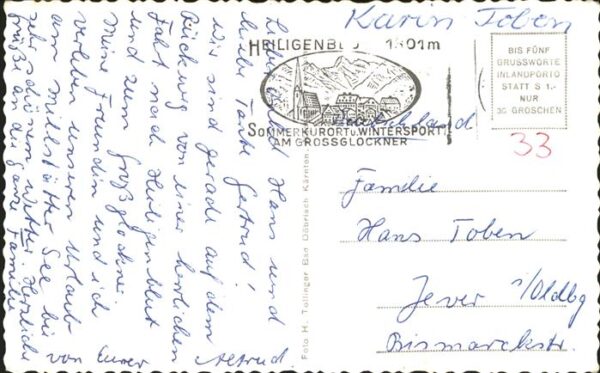 Karin Toben
HEILIGENBL 1301m
SOMMERKURORT u. WINTERSPORT
AM GROSSGLOCKNER
BIS FÜNF
GRUSSWORTE
INLANDPORTO
STATT S 1.-
NUR
30 GROSCHEN
33
Deutschland
Familie
Hans Toben
Jever i/Oldbg
Bismarckstr.
Foto H. Tollinger Bad Döbriach Kärnten
Lieber Onkel Hans und
liebe Tante Gertrud!
Wir sind gerade auf dem
Rückweg von einer herrlichen
Fahrt nach Heiligenblut
und zum Großglockner.
Meine Freundin und ich
verleben unseren Urlaub
am Millstätter See bei
sehr schönem Wetter. Herzliche
Grüße an die ganze Familie
von Eurer Altrud